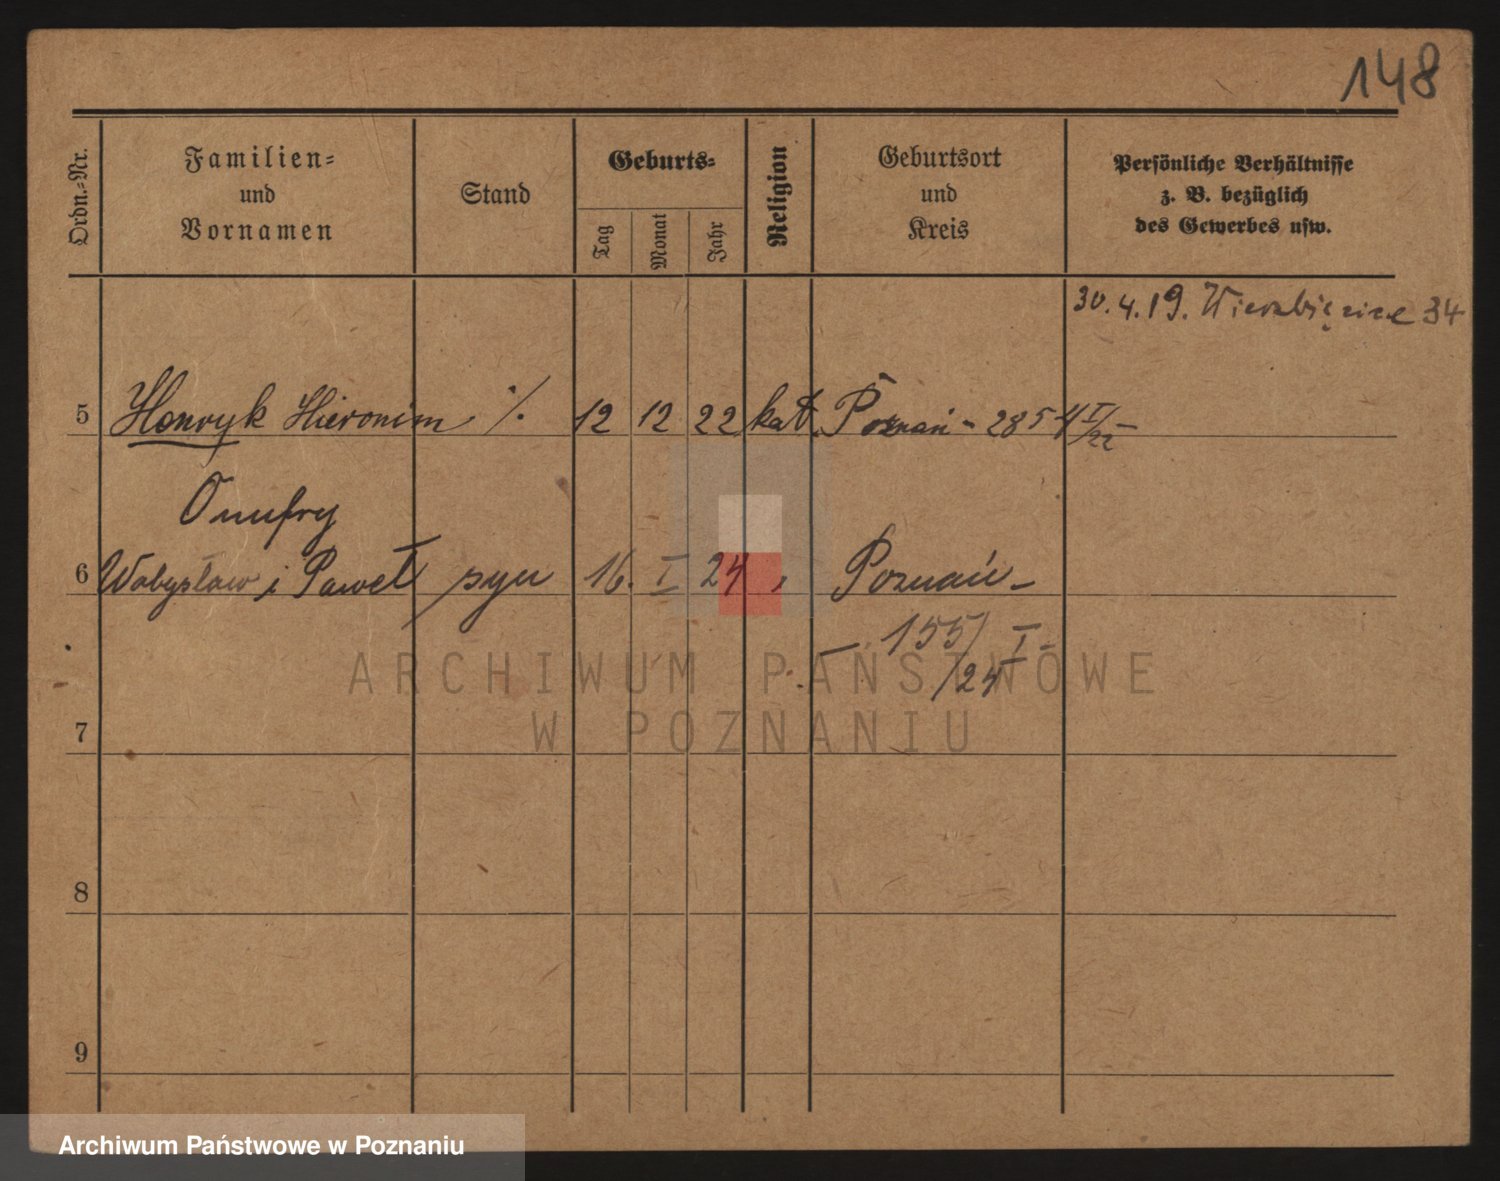 148
Ordn.=Nr.
Familien=
und
Vornamen
Stand
Geburts=
Tag
Monat
Jahr
Religion
Geburtsort
und
Kreis
Persönliche Verhältnisse
z. B. bezüglich
des Gewerbes usw.
30. 4. 19. Wierzbięcice 34
5 Henryk Hieronim ./. 12 12 22 kat. Poznań - 285
Onufry
6 i Paweł syn 16. I 24 Poznań -
- 155/ I -
/24
7
8
9
ARCHIWUM PAŃSTWOWE
W POZNANIU
Archiwum Państwowe w Poznaniu